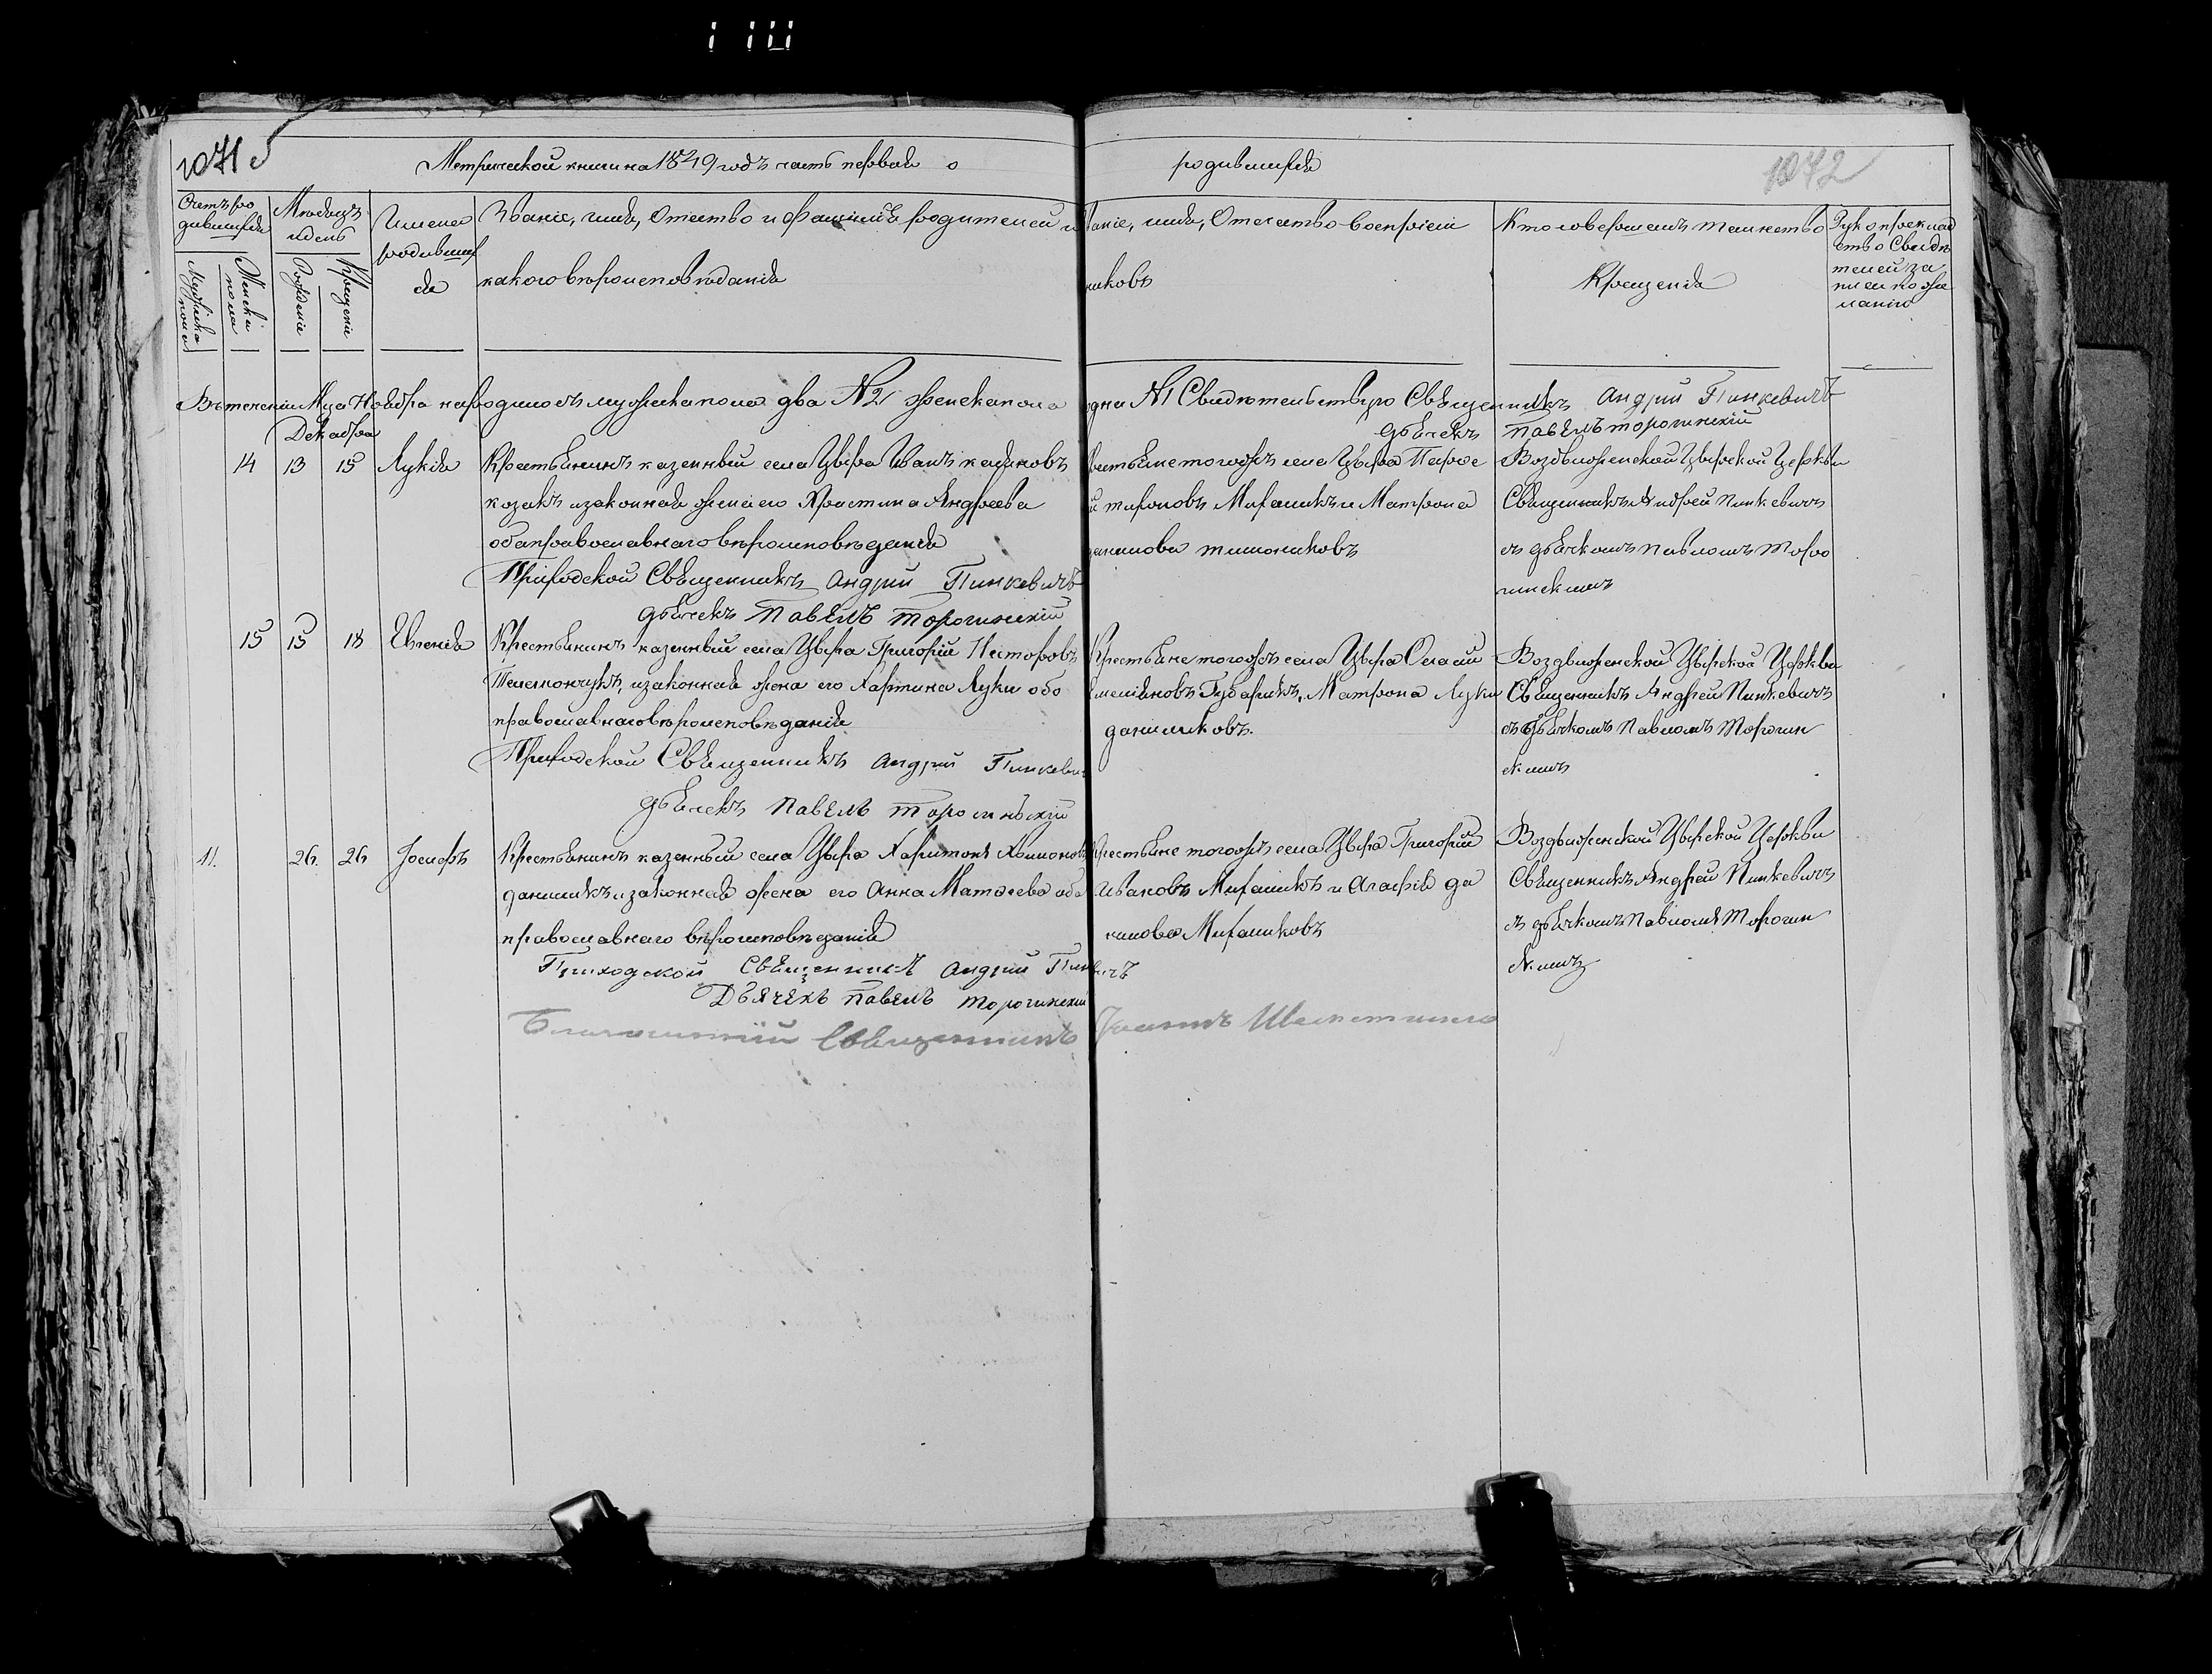 1071
Метрической книги на 1849 годъ часть первая о родившихся
1072
Счетъ родившихся
Мужеска пола
Женска пола
Месяцъ и день
Рождение
Крещение
Имена родившихся
Звание, имя, Отчество и фамилия родителей и
какого вероисповедания
Звание, имя, Отечество восприем
никовъ
Кто совершалъ таинство
Крещения
Рукоприклад
ство Свиде
телей за
писи по же
ланию
Въ течении М-ца Ноября народилось мужеска пола два №2 женска пола одна №1 Свидетельствую Священникъ Андрий Пинкевичъ
дьячекъ Павелъ Торочинский
Декабрь
14 13 15 Лукия Крестьянинъ казенный села Цыра Иванъ
козакъ и законная жена его Христина Андреева
оба православнаго вероисповедания
Приходской Священникъ Андрий Пинкевичъ
дьячекъ Павелъ Торочинский
Крестьяне тогожъ села Цыра
Мифаникъ и Матрона
Воздвиженской Цырской Церкви
Священникъ Андрей Пинкевичъ
съ дьячкомъ Павломъ Торо
чинскимъ
15 15 18 Евгения Крестьянинъ казенный села Цыра Григорий Несторовъ
и законная жена его Луки обо
православнаго вероисповедания
Приходской Священникъ Андрий Пинкевич
дьячекъ Павелъ Торочинский
Крестьяне тогожъ села Цыра
Емелияновъ Матрона Луки
даниликовъ.
Воздвиженской Цырской Церкви
Священникъ Андрей Пинкевичъ
съ дьячкомъ Павломъ Торочин
скимъ
11. 26. 26 Иосифъ Крестьянинъ казенный села Цыра Харитонъ
даниликъ и законная жена его Анна Матвеева оба
православнаго вероисповедания
Приходской Священникъ Андрий Пинкевичъ
Дьячекъ Павелъ Торочинский
Крестьяне тогожъ села Цыра Григорий
Ивановъ Мифаникъ и Агафия да
нилова Мифаниковъ
Воздвиженской Цырской Церкви
Священникъ Андрей Пинкевичъ
съ дьячкомъ Павломъ Торочин
скимъ
Священникъ Иоаннъ